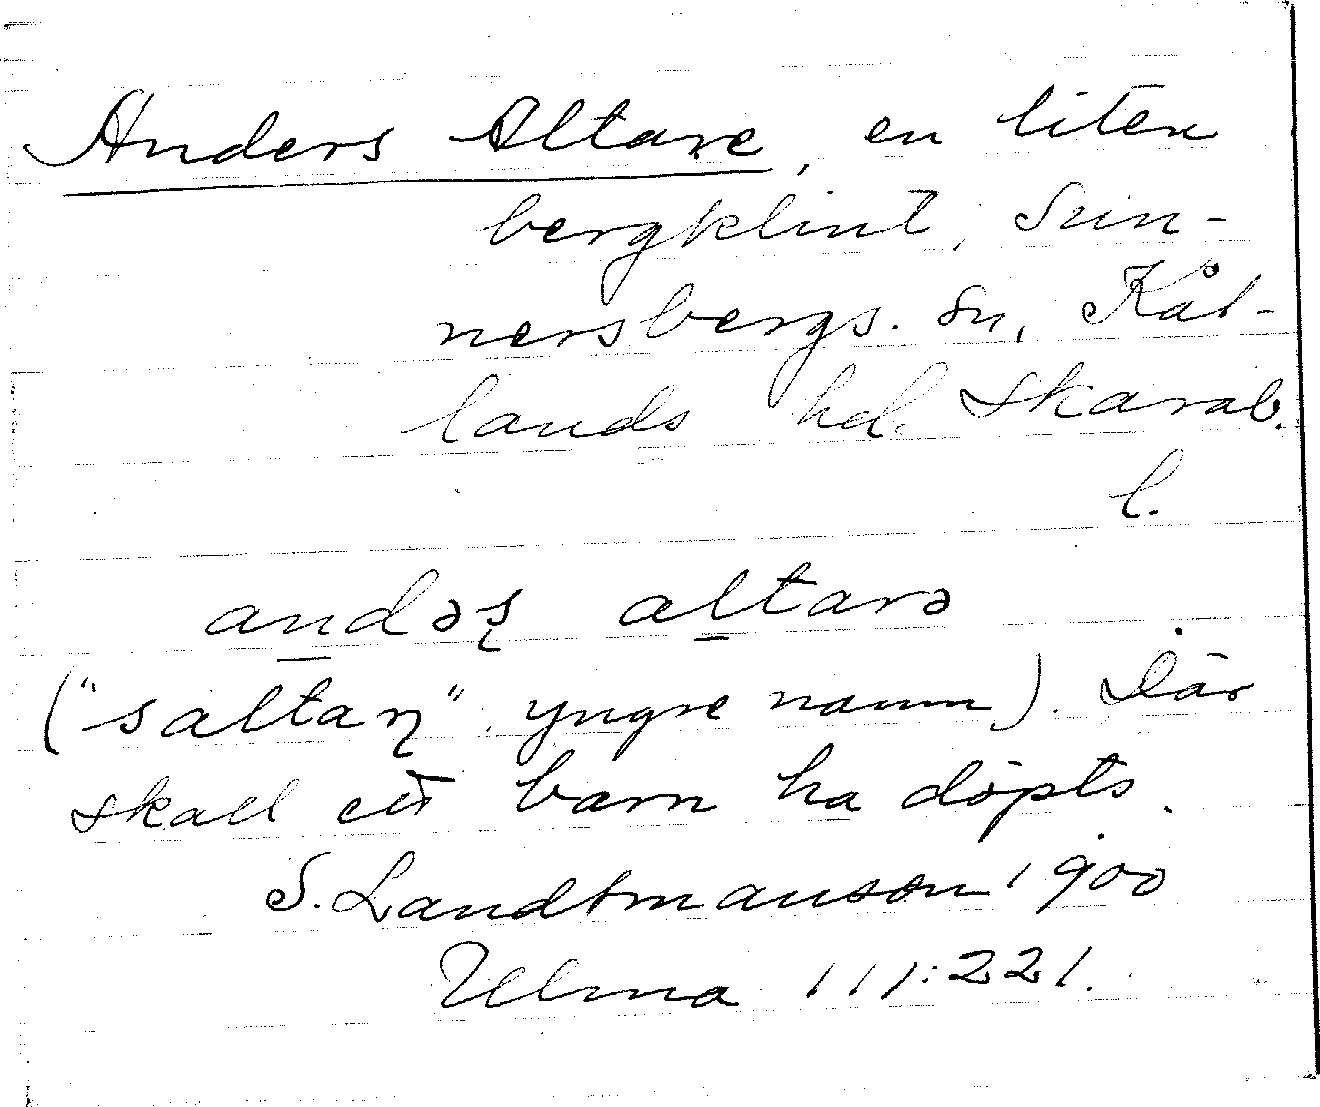 Anders Altare, en liten
bergklint, Sun-
nersbergs. sn, Kål-
lands hd. Skarab.
l.
andəş altarə
("saltaɳ" yngre namn). Där
skall ett barn ha döpts.
S. Landtmanson 1900
Ulma 111:221.